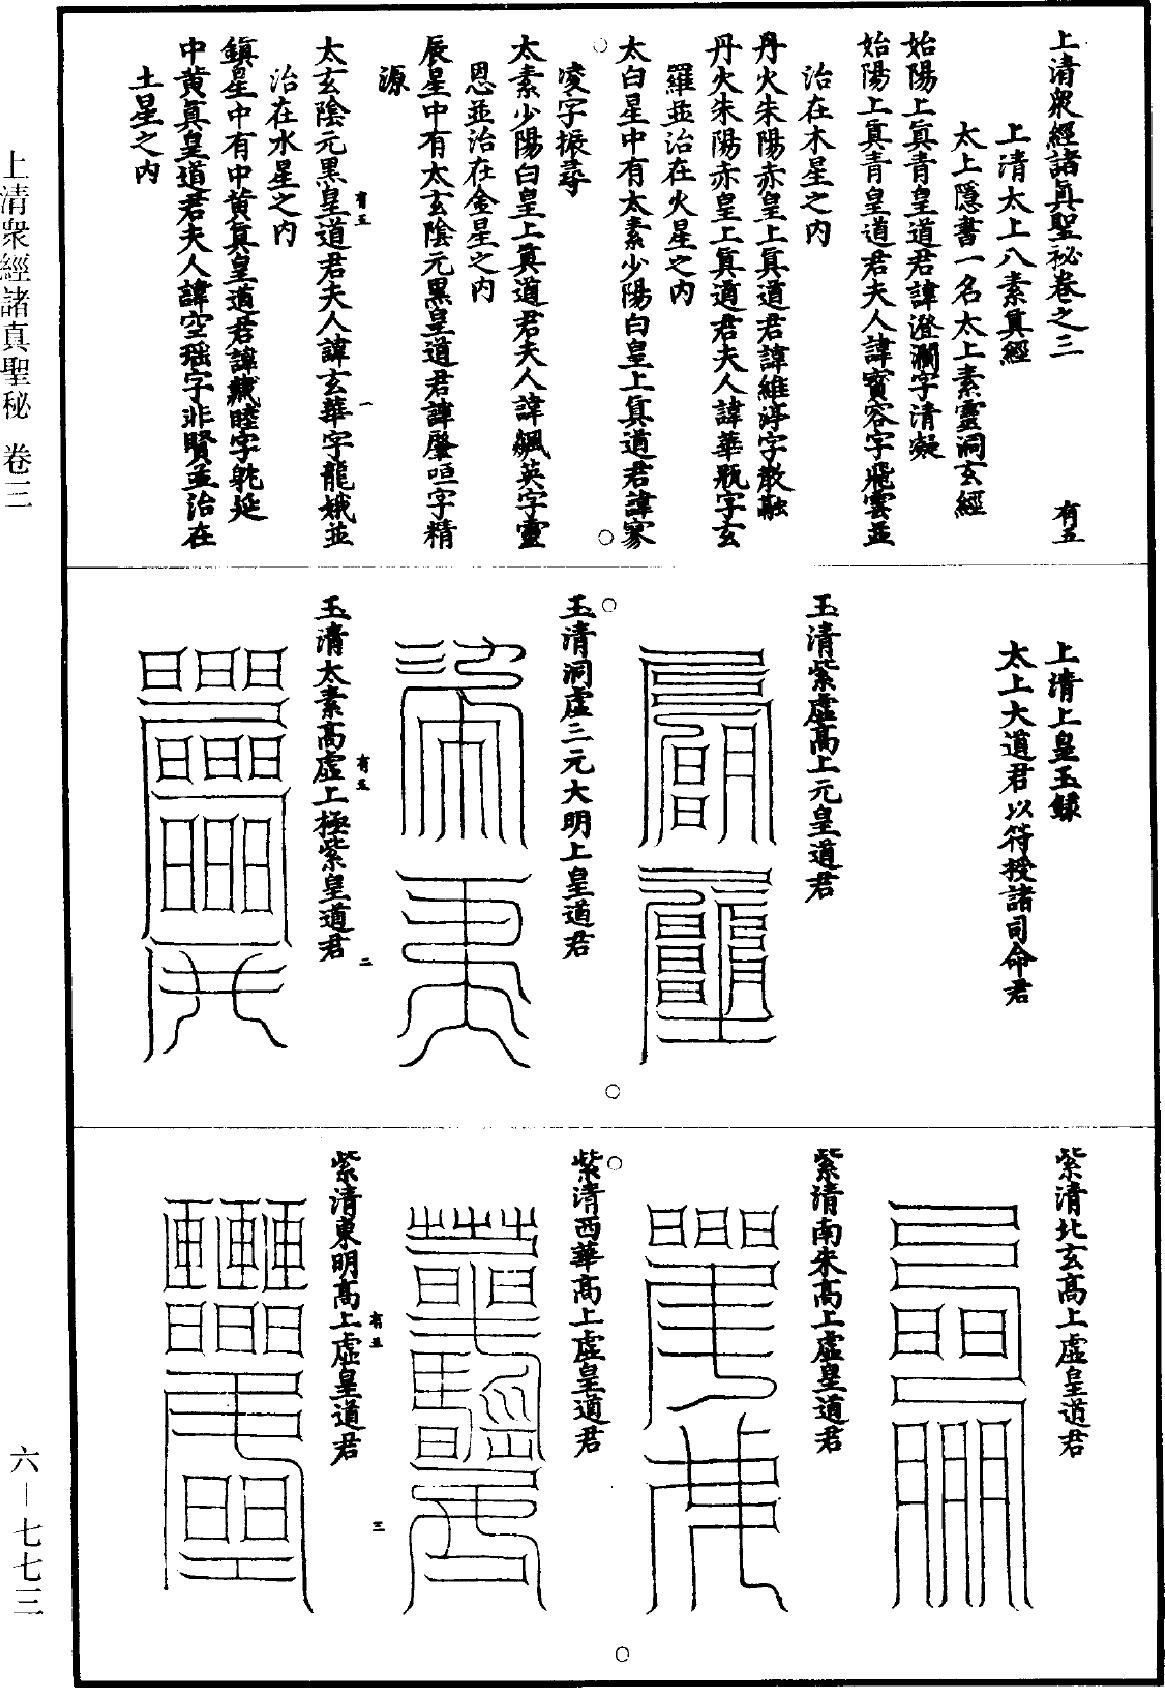 上清衆經諸真聖祕卷之三　有五
上清太上八素真經
太上隱書一名太上素靈洞玄經
始陽上真青皇道君諱澄瀾字清凝
始陽上真青皇道君夫人諱寶容字飛雲並
治在木星之內
丹火朱陽赤皇上真道君諱維淳字散融
丹火朱陽赤皇上真道君夫人諱華瓶字玄
羅並治在火星之內
太白星中有太素少陽白皇上真道君諱寥
凌字振尋
太素少陽白皇上真道君夫人諱飆英字靈
恩並治在金星之內
辰星中有太玄陰元黑皇道君諱肇恒字精
源
有五　一
太玄陰元黑皇道君夫人諱玄華字龍娥並
治在水星之內
鎮星中有中黃真皇道君諱藏睦字躭延
中黃真皇道君夫人諱空瑶字非賢並治在
土星之內
上清上皇玉籙
太上大道君以符授諸司命君
玉清紫虛高上元皇道君
玉清洞虛三元大明上皇道君
有五　二
玉清太素高虛上極紫皇道君
紫清北玄高上虛皇道君
紫清南朱高上虛皇道君
紫清西華高上虛皇道君
有五　三
紫清東明高上虛皇道君
上清衆經諸真聖秘　卷三
六—七七三